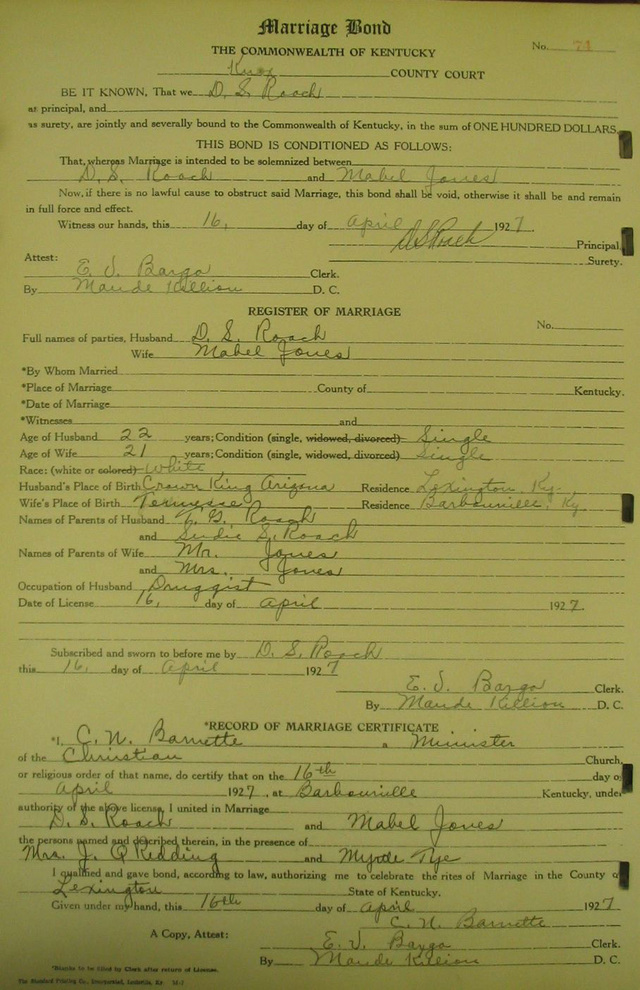 Marriage Bond
No. 71
THE COMMONWEALTH OF KENTUCKY
Knox COUNTY COURT
BE IT KNOWN, That we D. S. Roach
as principal, and
as surety, are jointly and severally bound to the Commonwealth of Kentucky, in the sum of ONE HUNDRED DOLLARS.
THIS BOND IS CONDITIONED AS FOLLOWS:
That, whereas Marriage is intended to be solemnized between
D. S. Roach and Mabel Jones
Now, if there is no lawful cause to obstruct said Marriage, this bond shall be void, otherwise it shall be and remain
in full force and effect.
Witness our hands, this 16, day of April 1927.
D S Roach Principal
Surety.
Attest:
E. J. Bargo Clerk.
By Maude Killion D. C.
REGISTER OF MARRIAGE
No.
Full names of parties, Husband D. S. Roach
Wife Mabel Jones
*By Whom Married
*Place of Marriage County of Kentucky.
*Date of Marriage
*Witnesses and
Age of Husband 22 years; Condition (single, widowed, divorced) Single
Age of Wife 21 years; Condition (single, widowed, divorced) Single
Race: (white or colored) White
Husband's Place of Birth Crown King Arizona Residence Lexington, Ky.
Wife's Place of Birth Tennessee Residence Barbourville, Ky
Names of Parents of Husband G. Roach
and Sudie S. Roach
Names of Parents of Wife Mr. Jones
and Mrs. Jones
Occupation of Husband Druggist
Date of License 16, day of April 1927.
Subscribed and sworn to before me by D. S. Roach
this 16, day of April 1927
E. J. Bargo Clerk.
By Maude Killion D. C.
*RECORD OF MARRIAGE CERTIFICATE
*I, C. N. Barnette a Minister
of the Christian Church,
or religious order of that name, do certify that on the 16th day of
April 1927, at Barbourville Kentucky, under
authority of the above license, I united in Marriage
D. S. Roach and Mabel Jones
the persons named and described therein, in the presence of
Mrs. J. Q Redding and Myrtle Tye
I qualified and gave bond, according to law, authorizing me to celebrate the rites of Marriage in the County of
Lexington State of Kentucky.
Given under my hand, this 16th day of April 1927
C. N. Barnette
A Copy, Attest: E. J. Bargo Clerk.
By Maude Killion D. C.
*Blanks to be filled by Clerk after return of License.
The Standard Printing Co., Incorporated, Louisville, Ky